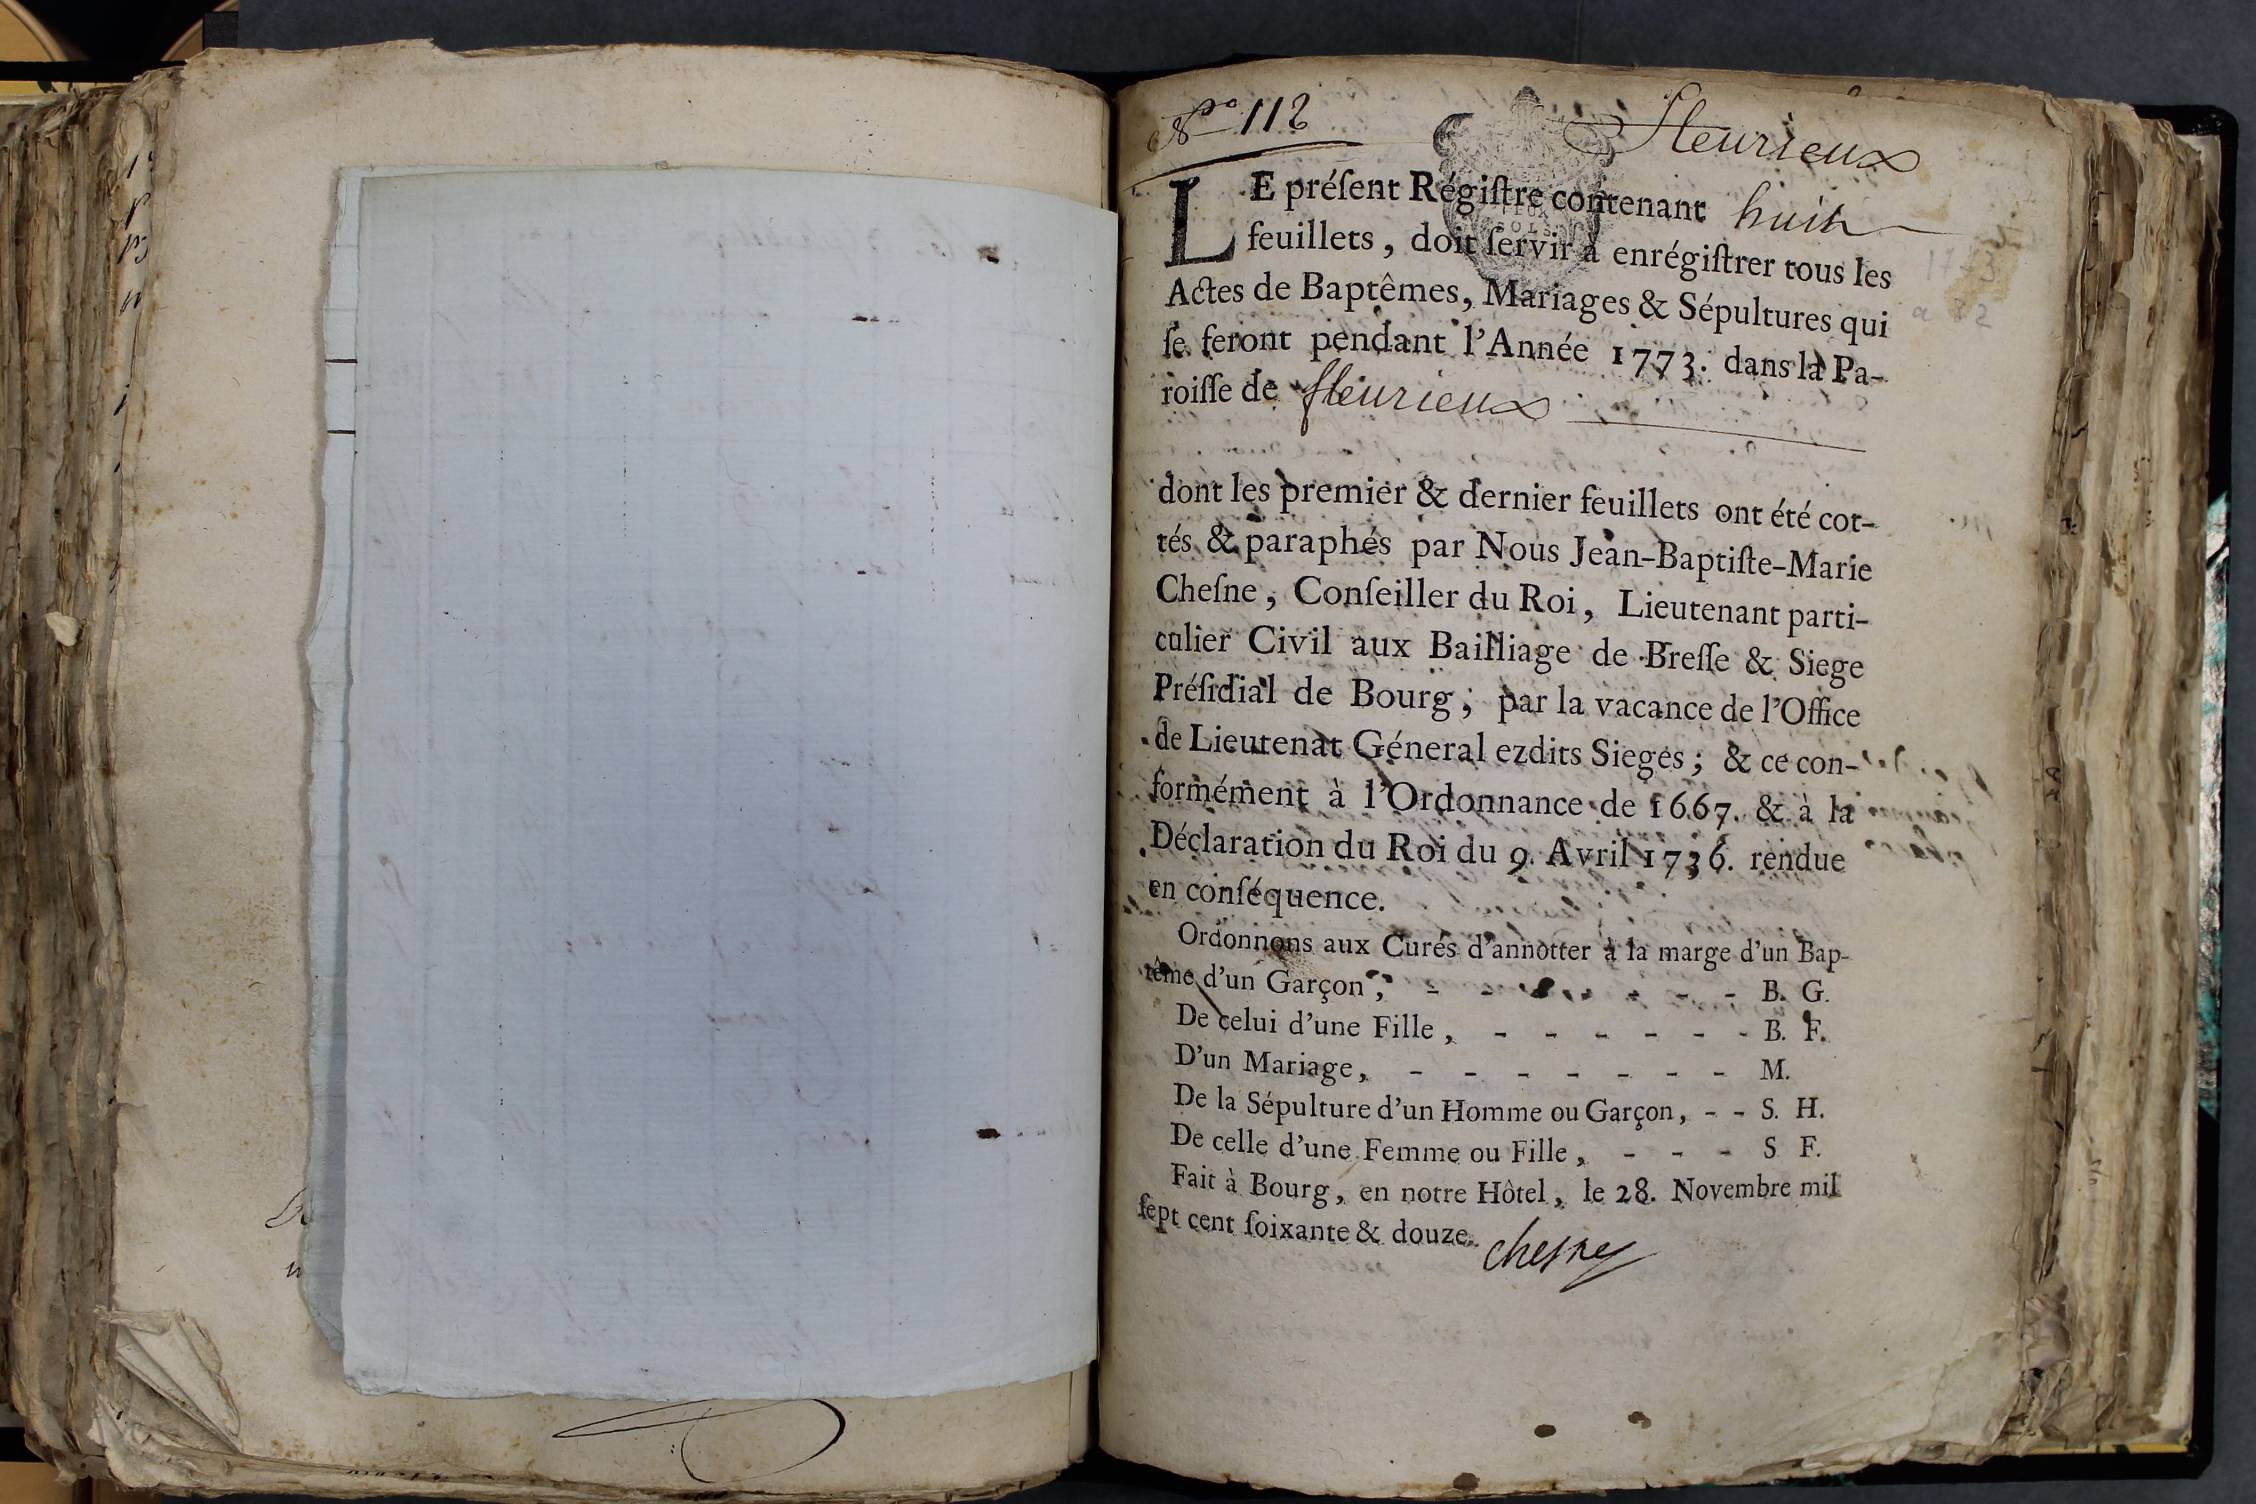 N° 112
Fleurieux
LE préſent Régiſtre contenant huit
feuillets, doit ſervir à enrégiſtrer tous les
Actes de Baptêmes, Mariages & Sépultures qui
ſe feront pendant l'Année 1773. dans la Pa-
roiſſe de fleurieux
dont les premier & dernier feuillets ont été cot-
tés & paraphés par Nous Jean-Baptiſte-Marie
Cheſne, Conſeiller du Roi, Lieutenant parti-
culier Civil aux Bailliage de Breſſe & Siege
Préſidial de Bourg; par la vacance de l'Office
de Lieutenat Géneral ezdits Sieges; & ce con-
formément à l'Ordonnance de 1667. & à la
Déclaration du Roi du 9. Avril 1736. rendue
en conſéquence.
Ordonnons aux Curés d'annotter à la marge d'un Bap-
tême d'un Garçon, - - - - - - - B. G.
De celui d'une Fille, - - - - - - B. F.
D'un Mariage, - - - - - - - M.
De la Sépulture d'un Homme ou Garçon, - - S. H.
De celle d'une Femme ou Fille, - - - S F.
Fait à Bourg, en notre Hôtel, le 28. Novembre mil
ſept cent ſoixante & douze.
chesne